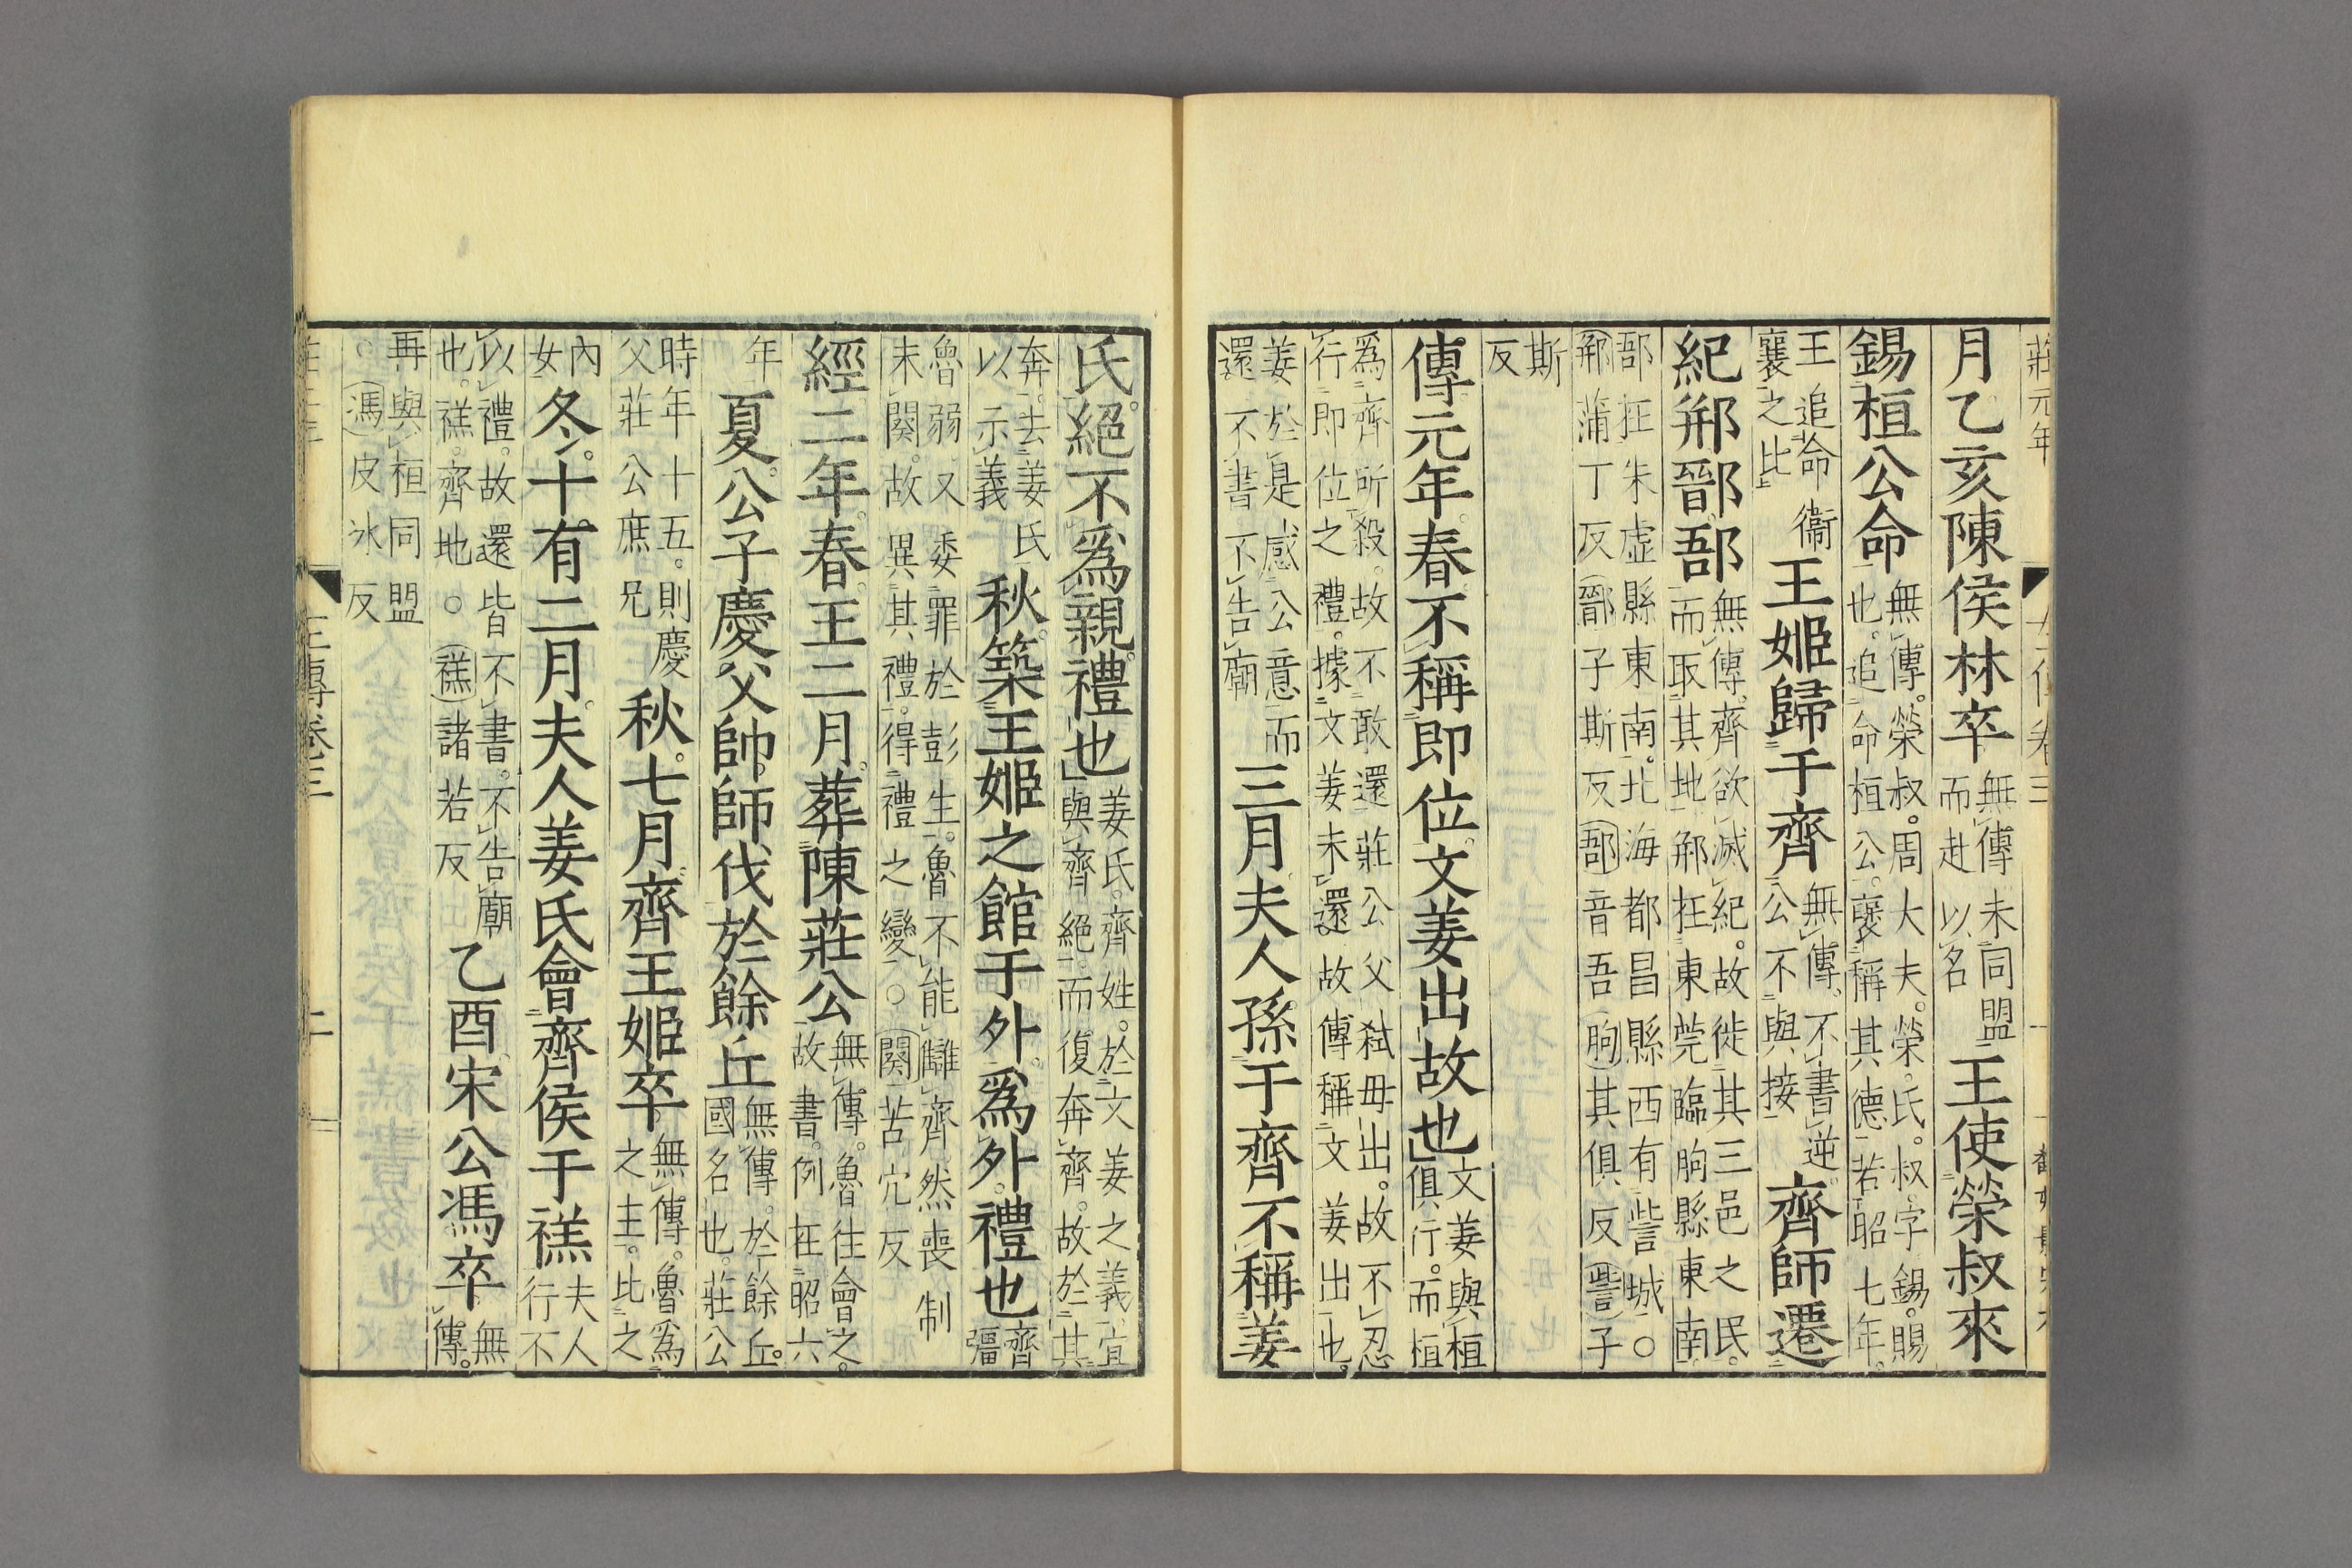 莊元年
月乙亥陳侯林卒無傳未同盟而赴以名王使榮叔來
錫桓公命無傳。榮叔。周大夫。榮。氏。叔。字。錫。賜也。追命桓公。襃稱其德。若昭七年。
王追命衞襄之比王姬歸于齊無傳、不書逆。公不與接齊師遷
紀郱鄑郚無傳。齊欲滅紀。故徙其三邑之民。而取其地郱在東莞臨朐縣東南
郚在朱虛縣東南。北海都昌縣西有訾城○郱蒲丁反鄑子斯反郚音吾朐其俱反訾子
斯反
傳元年。春。不稱即位。文姜出故也文姜與桓俱行。而桓
爲齊所殺。故不敢還莊公父弒母出。故不忍行即位之禮。據文姜未還。故傳稱文姜出也。
姜於是感公意而還不書不告廟三月夫人孫于齊不稱姜
氏。絕不爲親。禮也姜氏。齊姓。於文姜之義宜與齊絕。而復奔齊。故於其
奔。去姜氏以示義秋。築王姬之館于外。爲外。禮也齊彊
魯弱又委罪於彭生。魯不能讎齊然喪制未闋。故異其禮。得禮之變○闋苦穴反
經二年。春。王二月。葬陳莊公無傳。魯往會之。故書。例在昭六
年夏。公子慶父帥師伐於餘丘無傳。於餘丘。國名也。莊公
時年十五。則慶父莊公庶兄秋。七月。齊王姬卒無傳。魯爲之主。比之
內女冬。十有二月。夫人姜氏會齊侯于禚夫人行不
以禮。故還皆不書。不告廟也。禚。齊地。○禚諸若反乙酉宋公馮卒無傳。
再與桓同盟○馮皮冰反
卷三
二